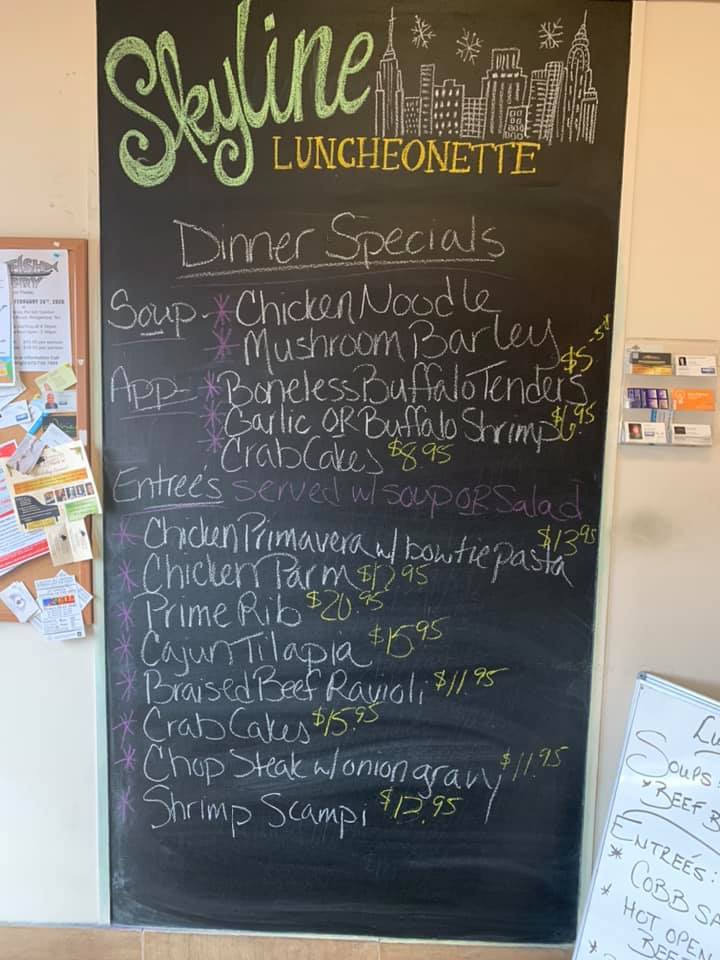 Skyline
LUNCHEONETTE
Dinner Specials
Soup - * Chicken Noodle
* Mushroom Barley
App - * Boneless Buffalo Tenders $5.50
* Garlic OR Buffalo Shrimp $6.95
* Crab Cakes $8.95
Entreé's served w/ soup OR Salad
* Chicken Primavera w/ bowtie pasta $13.95
* Chicken Parm $12.95
* Prime Rib $20.95
* Cajun Tilapia $15.95
* Braised Beef Ravioli $11.95
* Crab Cakes $15.95
* Chop Steak w/ onion gravy $11.95
* Shrimp Scampi $12.95
FISH
FRY
FEBRUARY 28TH, 2020
Lu
SOUPS
* BEEF B
ENTREÉS:
* COBB SA
* HOT OPEN
BEE